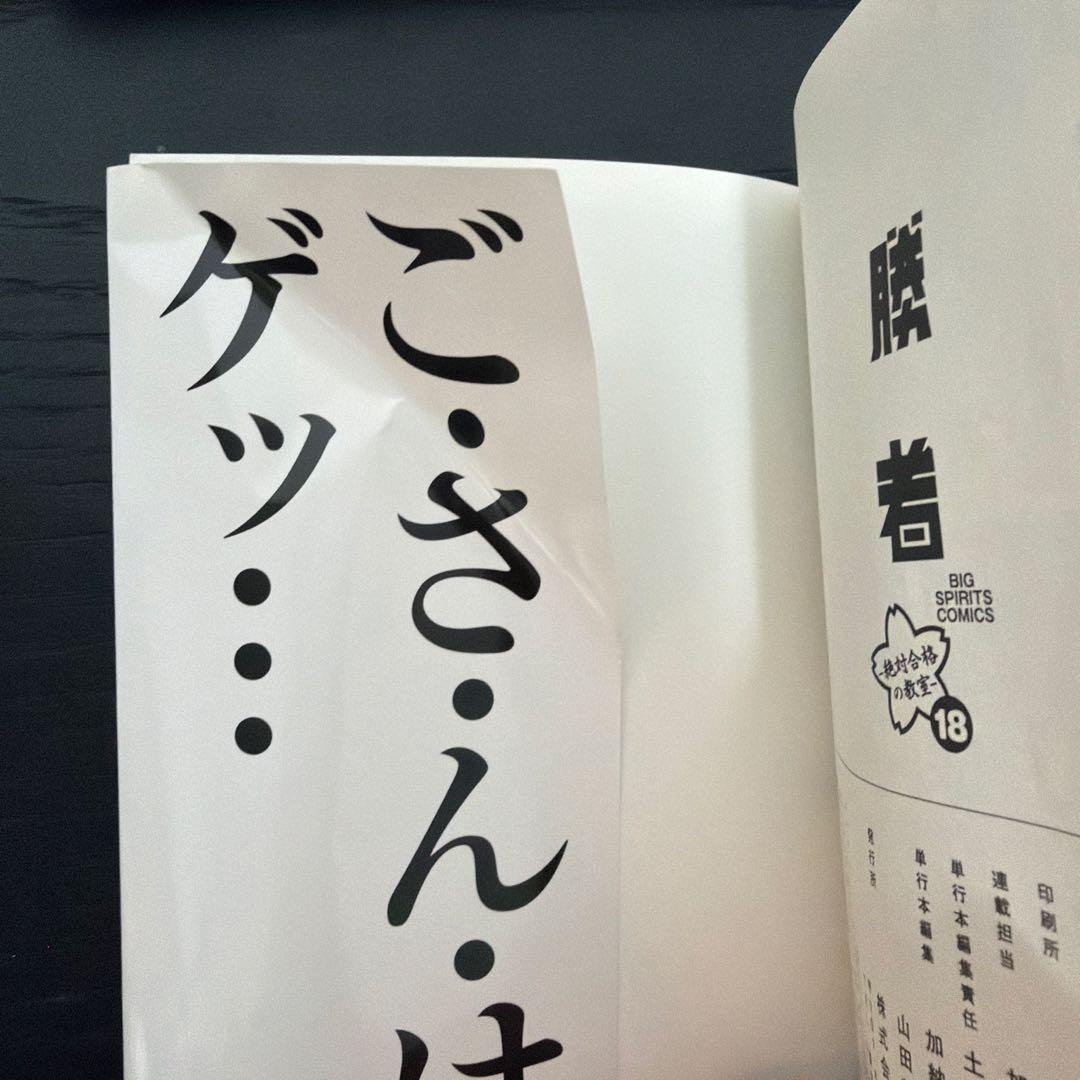 勝者
BIG
SPIRITS
COMICS
-絶対合格
の教室-
18
印刷所
連載担当
単行本編集責任 土
単行本編集 加納
山田
発行所 株式会
ご・さ・ん・け
ゲッ…